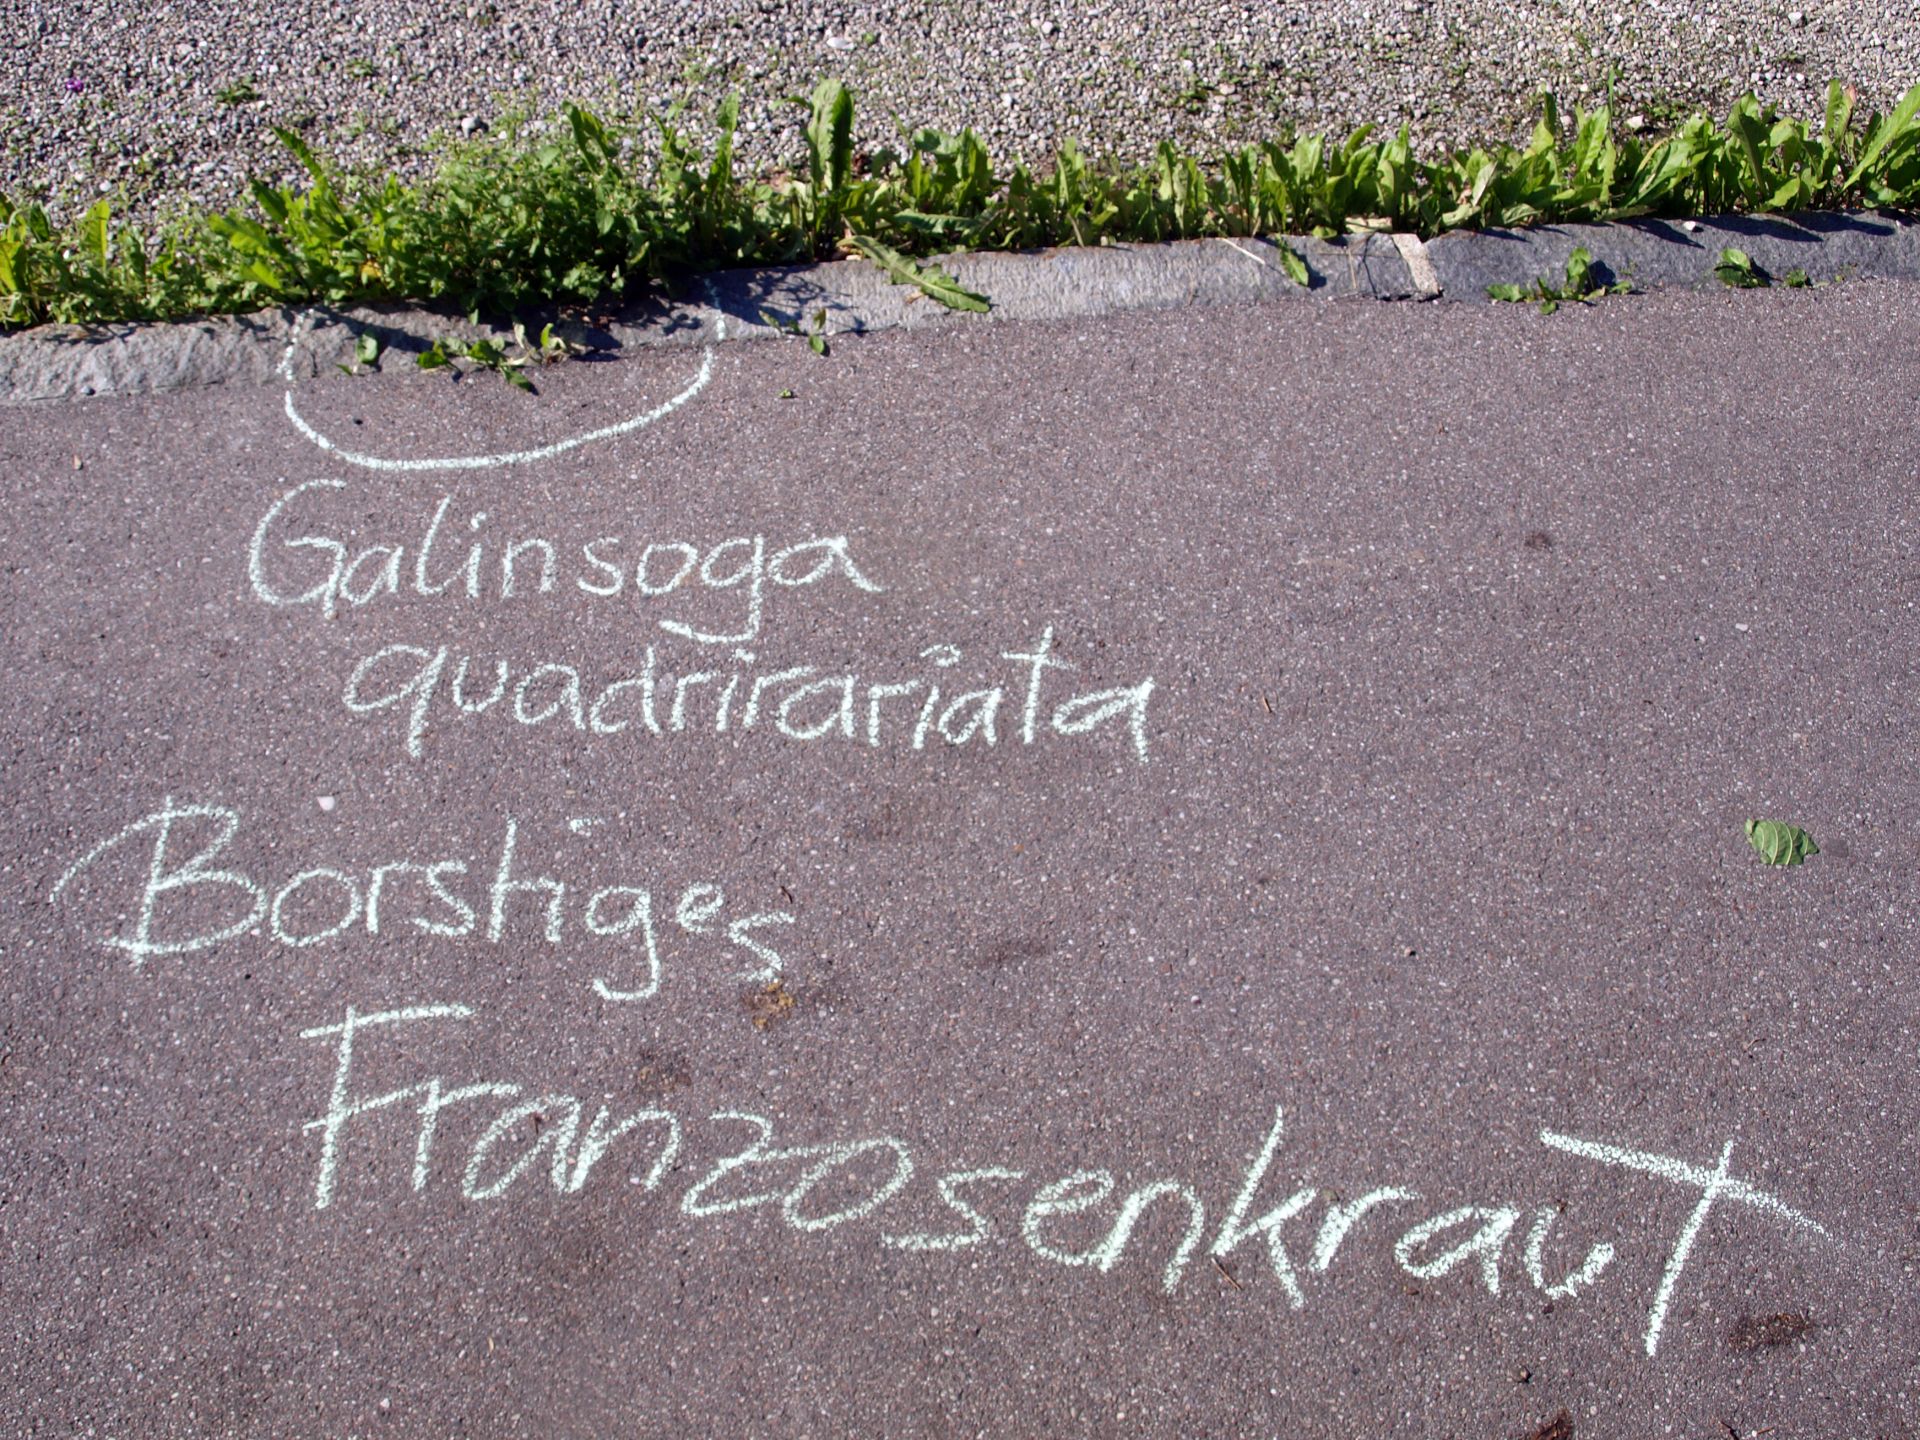 Galinsoga
quadrirariata
Borstiges
Franzosenkraut